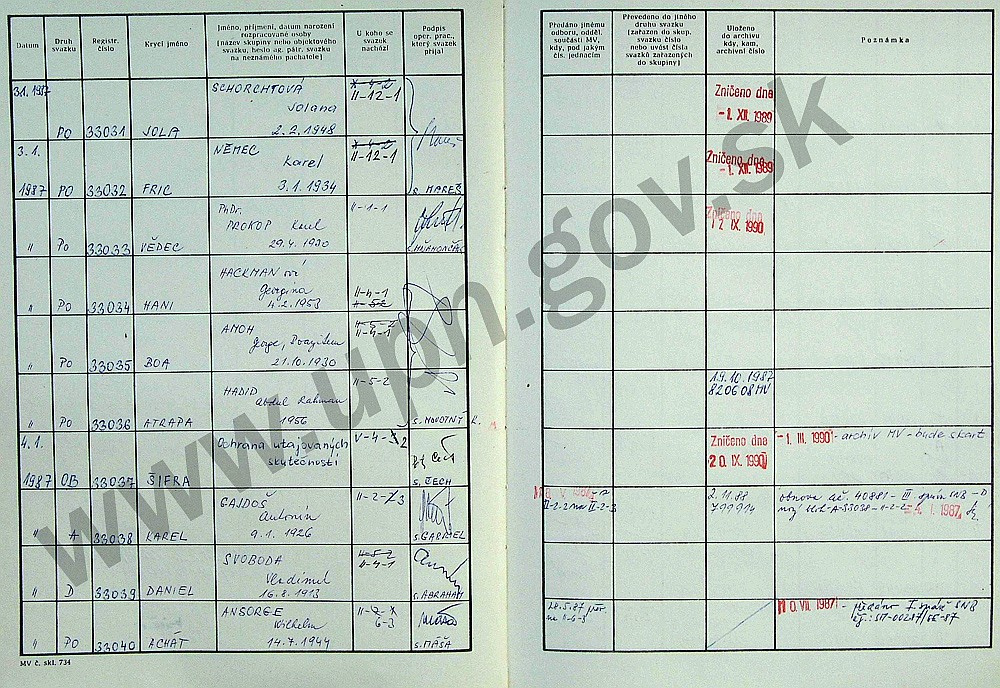 Datum
Druh svazku
Registr. číslo
Krycí jméno
Jméno, příjmení, datum narození
rozpracované osoby
(název skupiny nebo objektového
svazku, heslo ag. pátr. svazku
na neznámého pachatele)
U koho se
svazek
nachází
Podpis
oper. prac.,
který svazek
přijal
Předáno jinému
odboru, odděl.
součásti MV,
kdy, pod jakým
čís. jednacím
Převedeno do jiného
druhu svazku
(zařazen do skup.
svazku číslo
nebo uvést čísla
svazků zařazených
do skupiny)
Uloženo
do archivu
kdy, kam,
archivní číslo
Poznámka
3.1. 1987 PO 33031 JOLA
SCHORCHTOVÁ
Jolana
2.2.1948
II-12-1
Zničeno dne
-1. XII. 1989
3.1.
1987 PO 33032 FRIC
NĚMEC
Karel
3.1.1934
II-12-1
s. MAREŠ
Zničeno dne
-1. XII. 1989
" PO 33033 VĚDEC
PhDr.
PROKOP Karel
29.4.1930
II-1-1
Zničeno dne
12. IX. 1990
" PO 33034 HANI
HACKMAN
Georgina
4.2.1953
II-4-1
II-5-2
" PO 33035 BOA
AMOH
George,
21.10.1930
II-5-2
II-4-1
" PO 33036 ATRAPA
HADID
Abdul Rahman
1956
II-5-2
s. NOVOTNÝ
19.10.1987
820608 MV
4.1.
1987 OB 33037 ŠIFRA
Ochrana utajovaných
skutečností
V-4-2
s. ČECH
Zničeno dne
20. IX. 1990
-1. III. 1990 - archiv MV - bude skart
" A 33038 KAREL
GAJDOŠ
Antonín
9.1.1926
II-2-3
s. GABRIEL
II-2-2 na II-2-3
2.11.88
799914
obnova ač. 40881 - III správa SNB -
-4. I. 1987
" D 33039 DANIEL
SVOBODA
Vladimír
16.8.1913
II-5-2
II-4-1
s. ABRAHAM
" PO 33040 ACHÁT
ANSORGE
Wilhelm
14.7.1944
6-3
s. MÁŠA
28.5.87 per.
na II-6-3
10. VII. 1987 - předáno I. správě SNB
MV č. skl. 734
www.upn.gov.sk